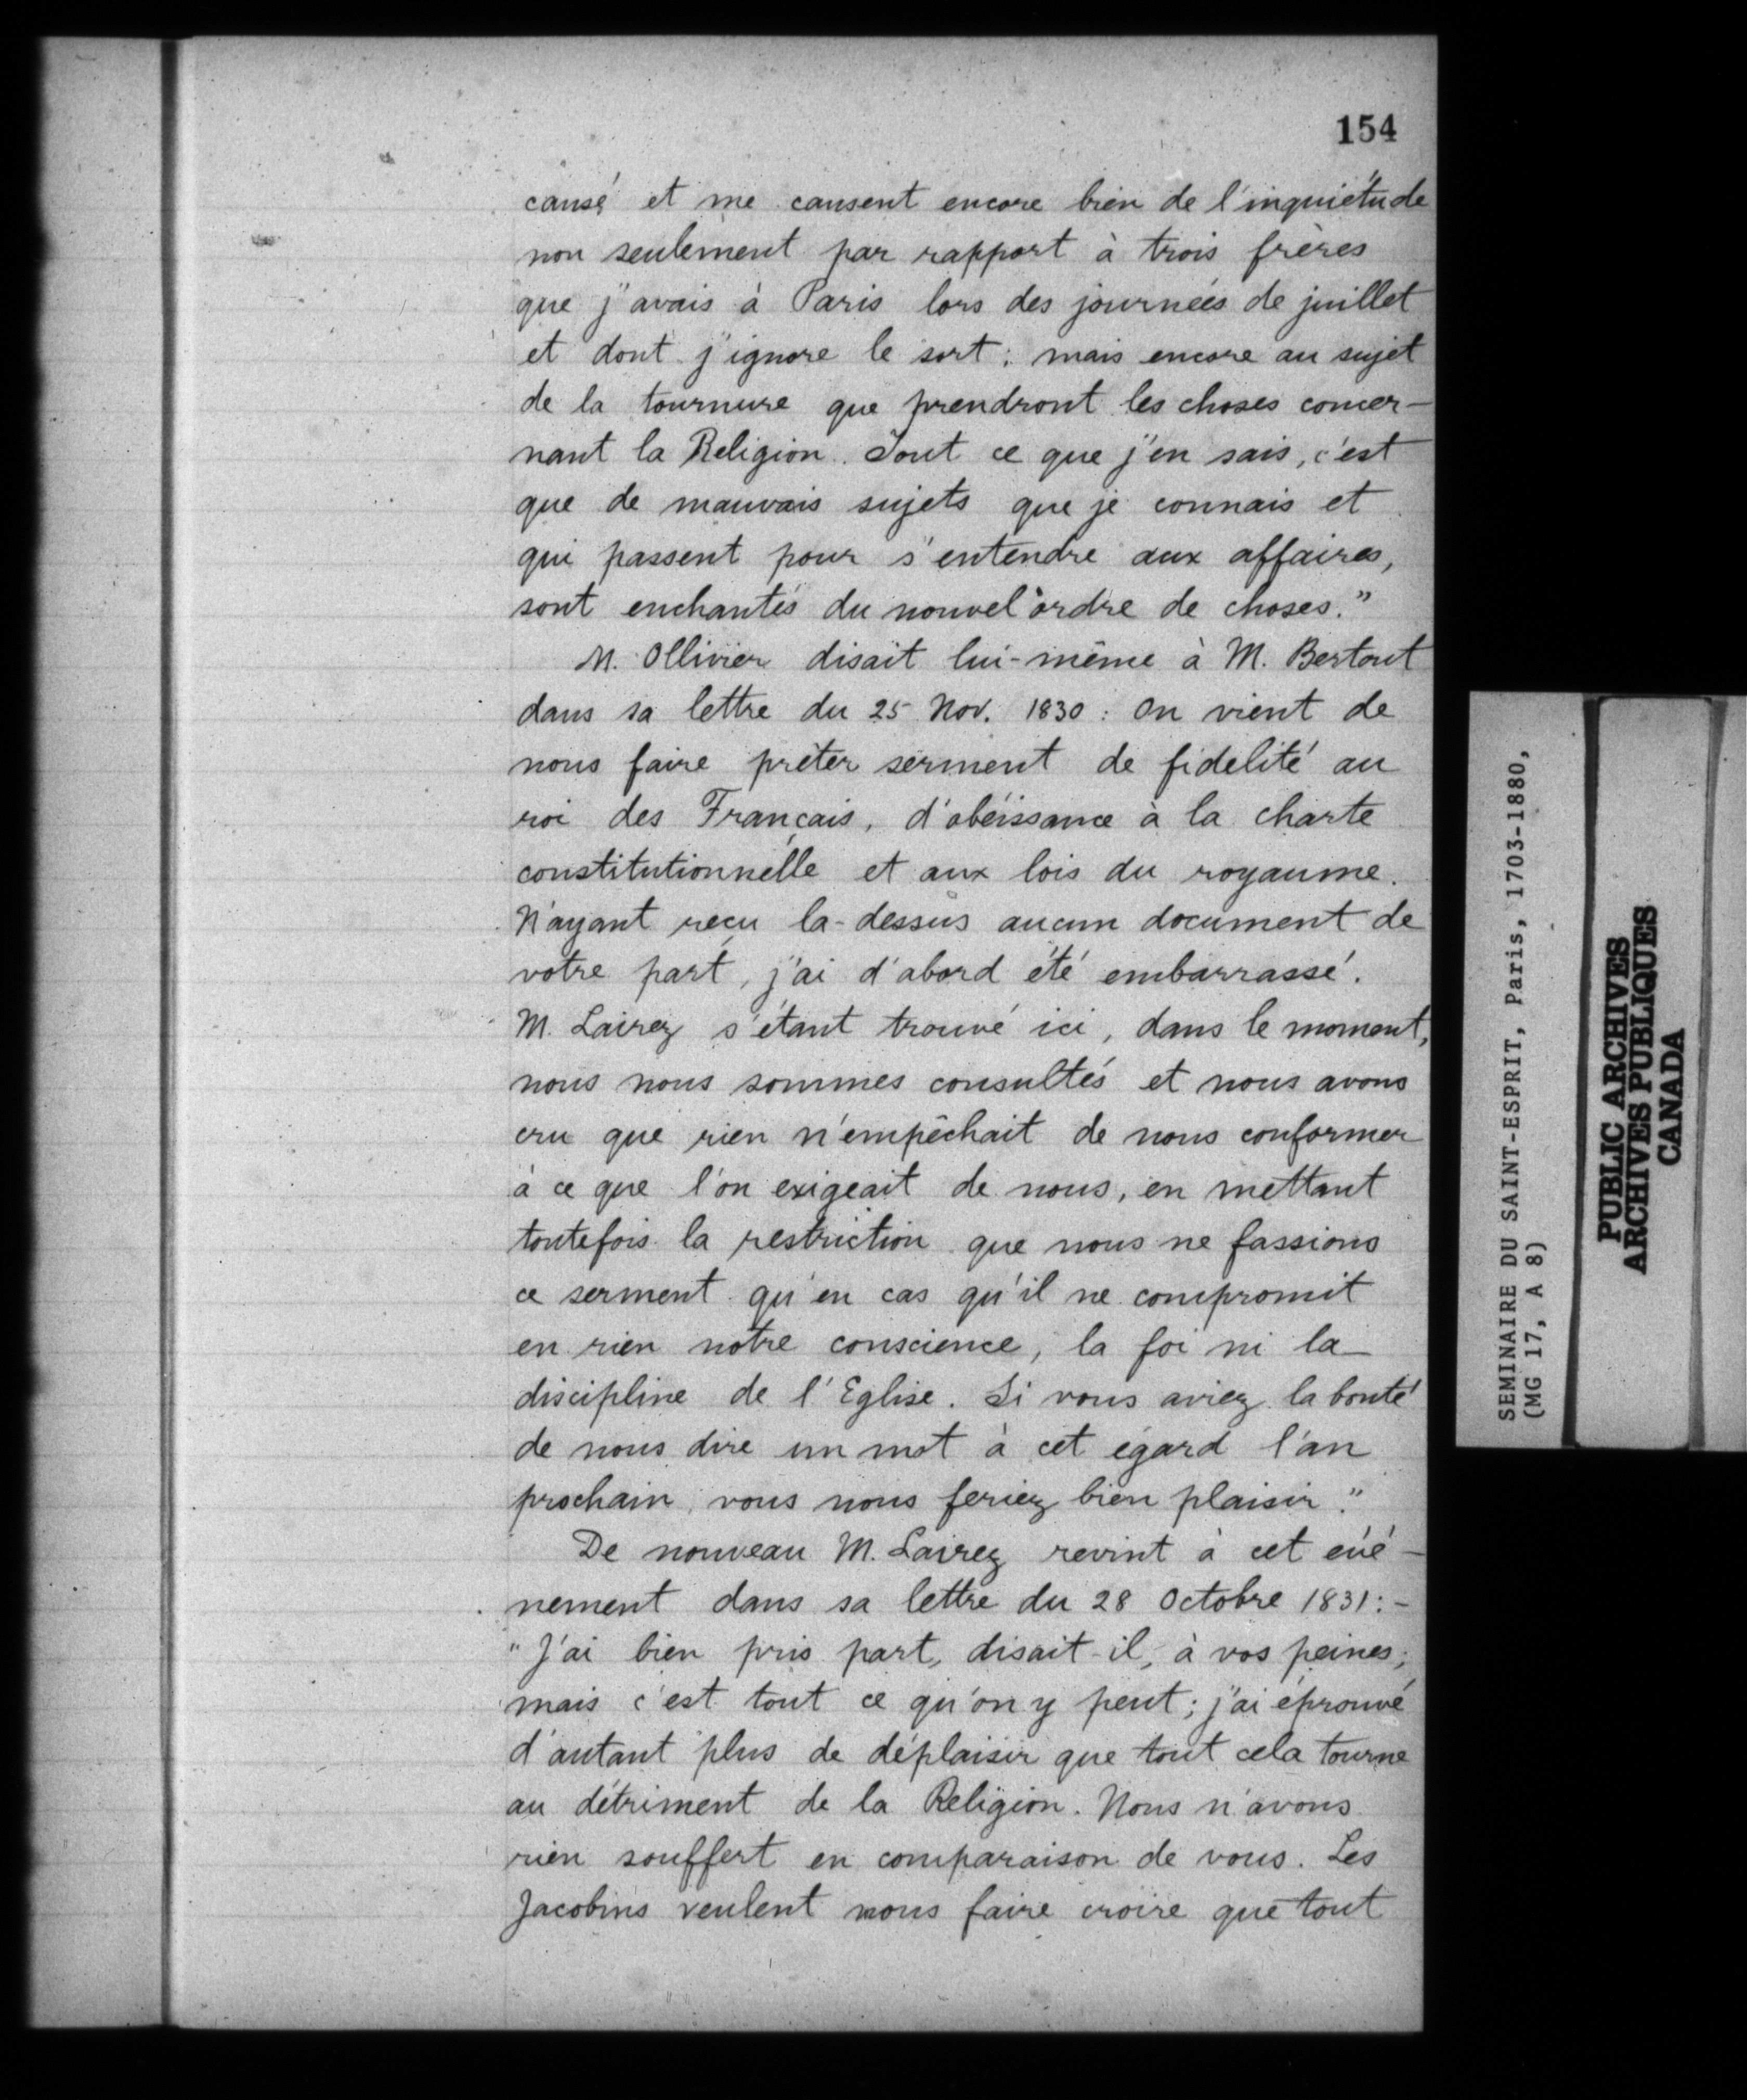 154
causé et me causent encore bien de l'inquiétude
non seulement par rapport à trois frères
que j'avais à Paris lors des journées de juillet
et dont j'ignore le sort ; mais encore au sujet
de la tournure que prendront les choses concer-
nant la Religion. Tout ce que j'en sais, c'est
que de mauvais sujets que je connais et
qui passent pour s'entendre aux affaires,
sont enchantés du nouvel ordre de choses."
M. Ollivier disait lui-même à M. Bertout
dans sa lettre du 25 Nov. 1830 : On vient de
nous faire prêter serment de fidelité au
roi des Français, d'obéissance à la charte
constitutionnelle et aux lois du royaume.
N'ayant reçu la-dessus aucun document de
votre part, j'ai d'abord été embarrassé.
M. Lairez s'étant trouvé ici, dans le moment,
nous nous sommes consultés et nous avons
cru que rien n'empêchait de nous conformer
à ce que l'on exigeait de nous, en mettant
toutefois la restriction que nous ne fassions
ce serment qu'en cas qu'il ne compromit
en rien notre conscience, la foi ni la
discipline de l'Eglise. Si vous aviez la bonté
de nous dire un mot à cet égard l'an
prochain, vous nous feriez bien plaisir."
De nouveau M. Lairez revint à cet évé-
nement dans sa lettre du 28 Octobre 1831 : -
"J'ai bien pris part, disait-il, à vos peines ;
mais c'est tout ce qu'on y peut ; j'ai éprouvé
d'autant plus de déplaisir que tout cela tourne
au détriment de la Religion. Nous n'avons
rien souffert en comparaison de vous. Les
Jacobins veulent nous faire croire que tout
SEMINAIRE DU SAINT-ESPRIT, Paris, 1703-1880,
(MG 17, A 8)
PUBLIC ARCHIVES
ARCHIVES PUBLIQUES
CANADA